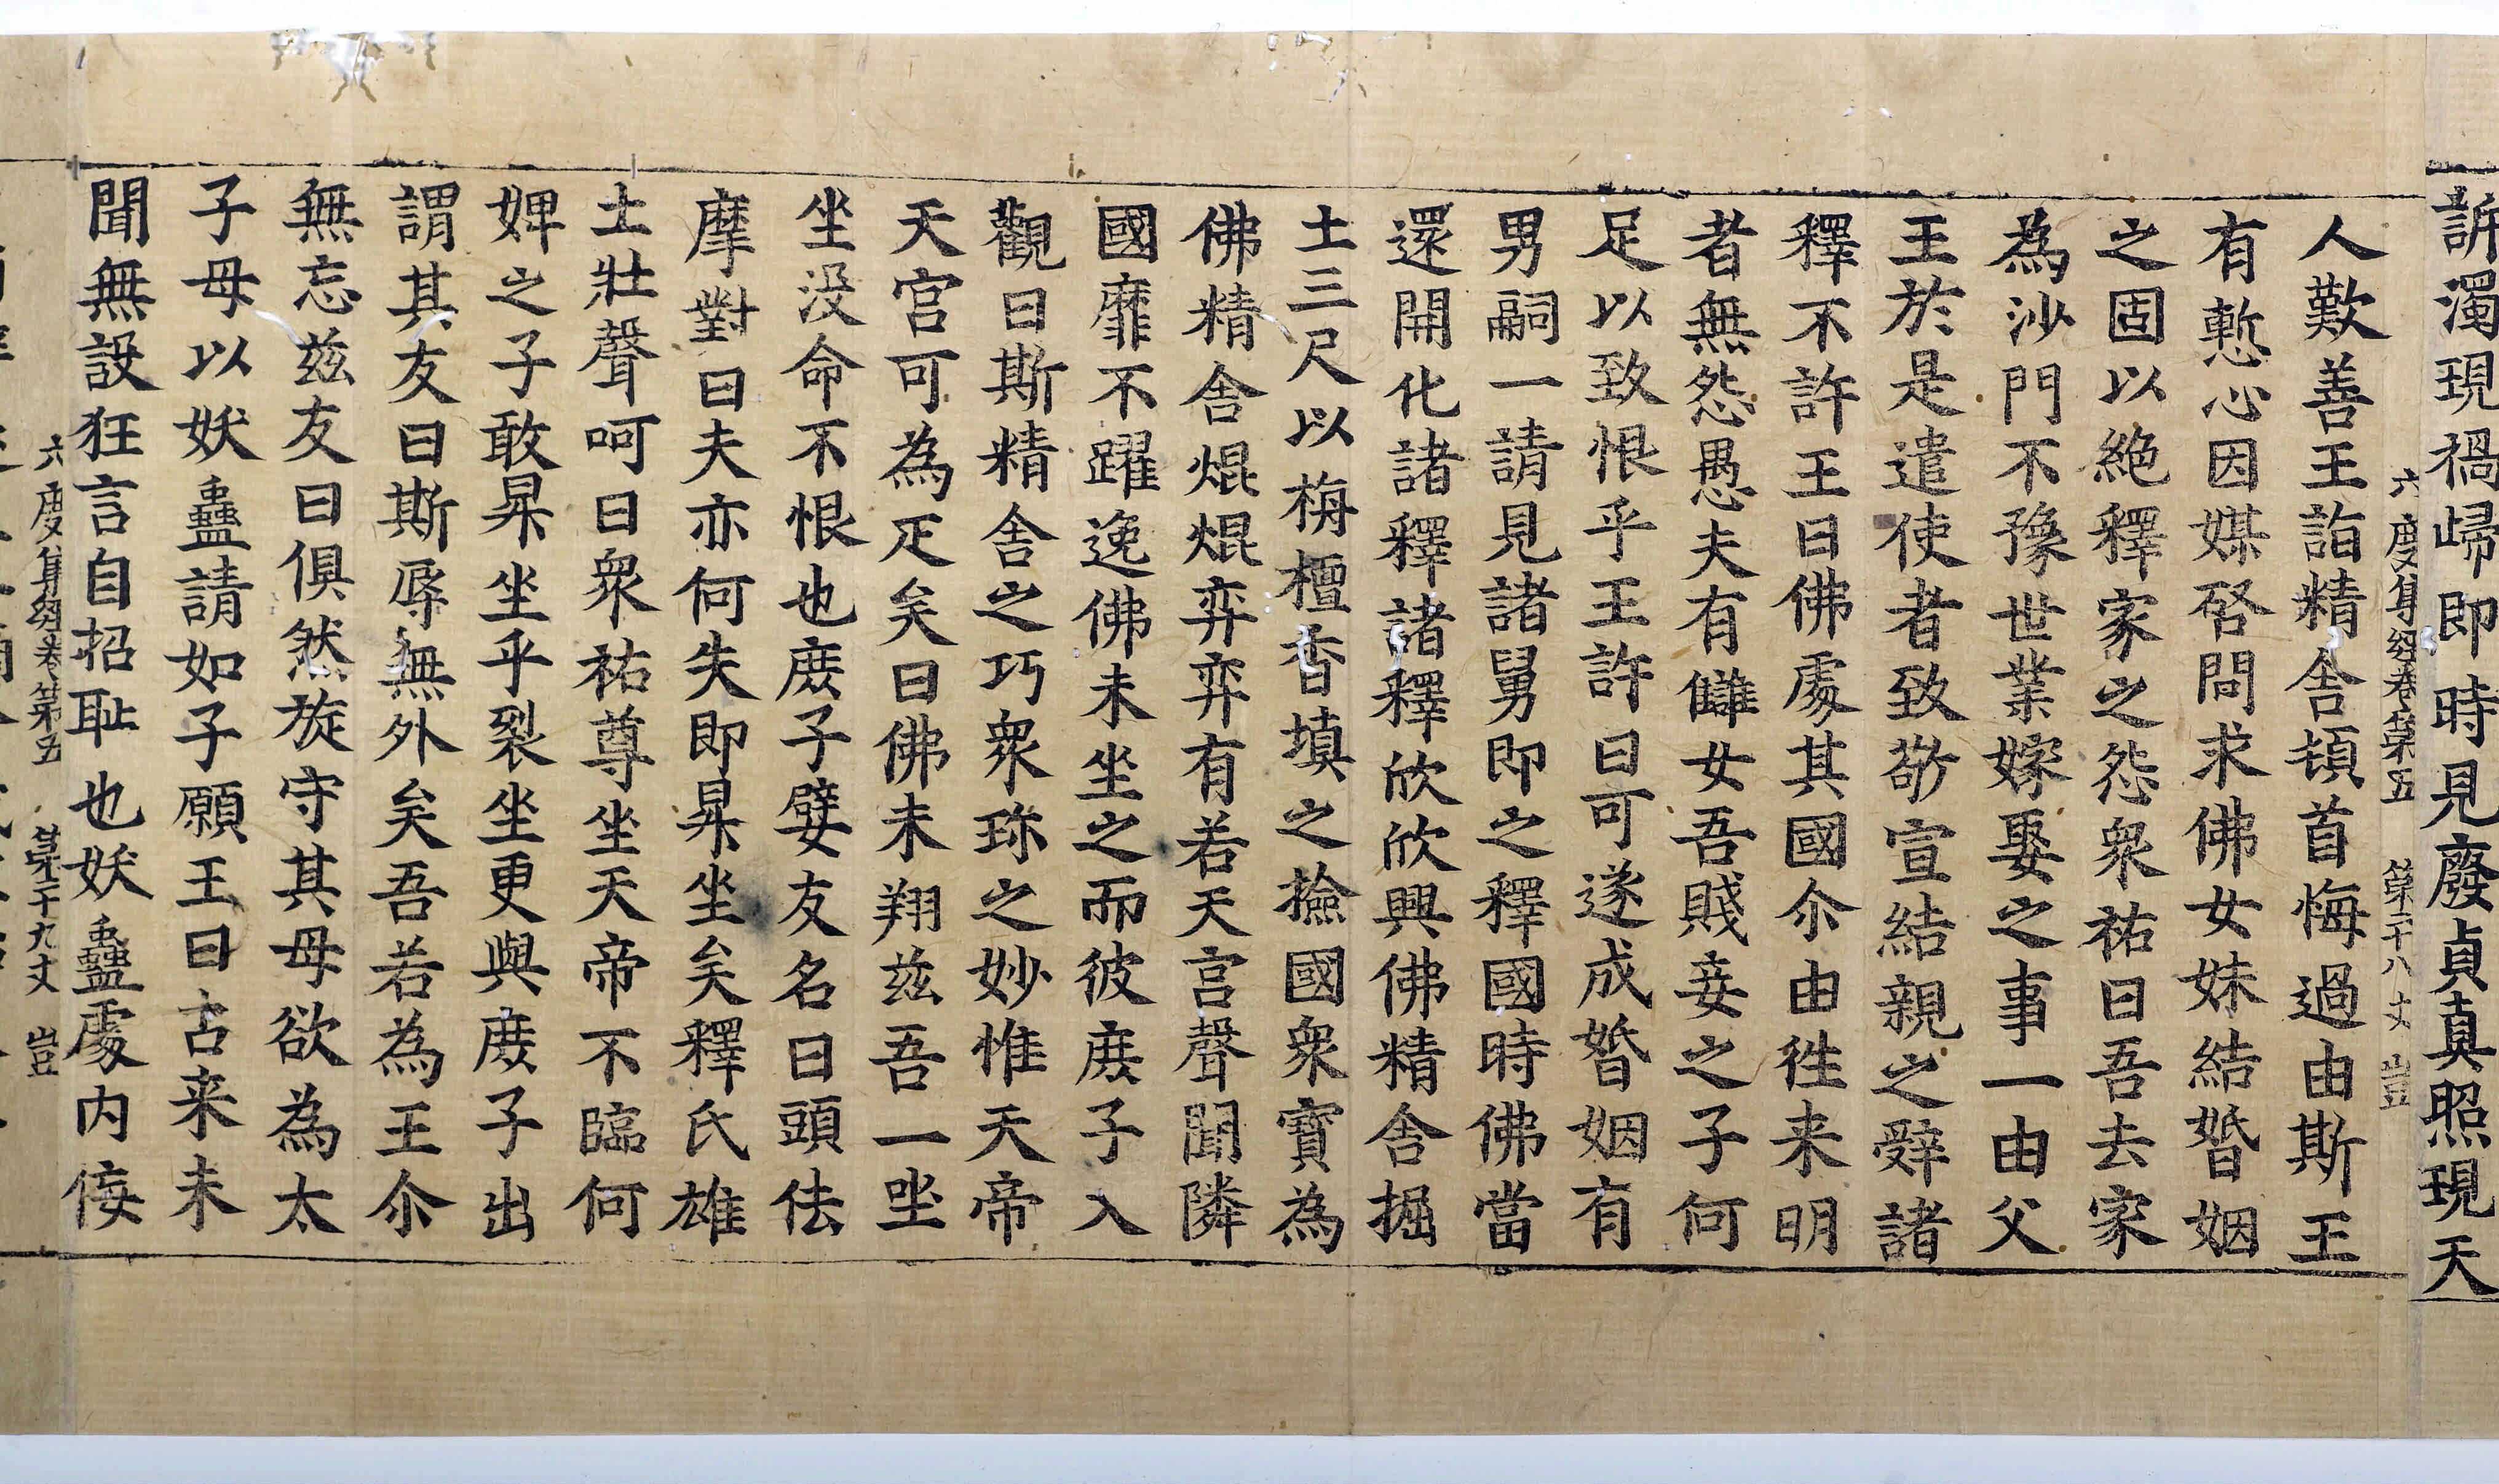 訴濁現禍歸即時見廢貞真照現天
六度集經卷第五　第二十八丈　豈
人歎善王詣精舍頓首悔過由斯王
有慙心因媒啓問求佛女妹結婚姻
之固以絶釋家之怨衆祐曰吾去家
為沙門不豫世業嫁娶之事一由父
王於是遣使者致敬宣結親之辝諸
釋不許王曰佛處其國尒由徃来明
者無怨愚夫有讎女吾賤妾之子何
足以致恨乎王許曰可遂成婚姻有
男嗣一請見諸舅即之釋國時佛當
還開化諸釋諸釋欣欣興佛精舍掘
土三尺以栴檀香填之撿國衆寶為
佛精舍焜焜弈弈有若天宫聲聞隣
國靡不躍逸佛未坐之而彼庻子入
觀曰斯精舍之巧衆珎之妙惟天帝
天宫可為疋矣曰佛未翔兹吾一坐
坐没命不恨也庻子嬖友名曰頭佉
摩對曰夫亦何失即昇坐矣釋氏雄
士壯聲呵曰衆祐尊坐天帝不臨何
婢之子敢昇坐乎裂坐更與庻子出
謂其友曰斯辱無外矣吾若為王尒
無忘兹友曰俱然旋守其母欲為太
子母以妖蠱請如子願王曰古来未
聞無設狂言自招耻也妖蠱處内佞
六度集經卷第五　第二十九丈　豈